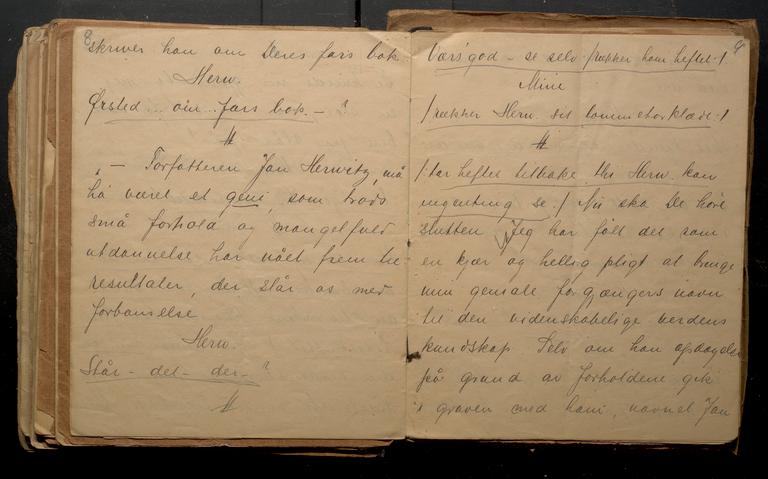 8
skriver han om Deres fars bok
Herw.
Ørsted .. om .. fars bok. – ?
#
„ – Forfatteren Jan Herwitz, må
ha været et geni, som trods
små forhold og mangelfuld
utdannelse har nået frem til
resultater, der slår os med
forbauselse
Herw.
Står – det – der – ?
#
9
Værs'god – se selv /: rækker ham heftet :/
Mine
/ rækker Herw. sit lommetørklæde :/
#
/: tar heftet tilbake, thi Herw. kan
ingenting se :/ Nu ska De høre
slutten Jeg har følt det som
en kjær og hellig pligt at bringe
min geniale forgjængers navn
til den videnskabelige verdens
kundskap. Selv om han opdagelse
på grund av forholdene gik
i graven med ham, navnet Jan